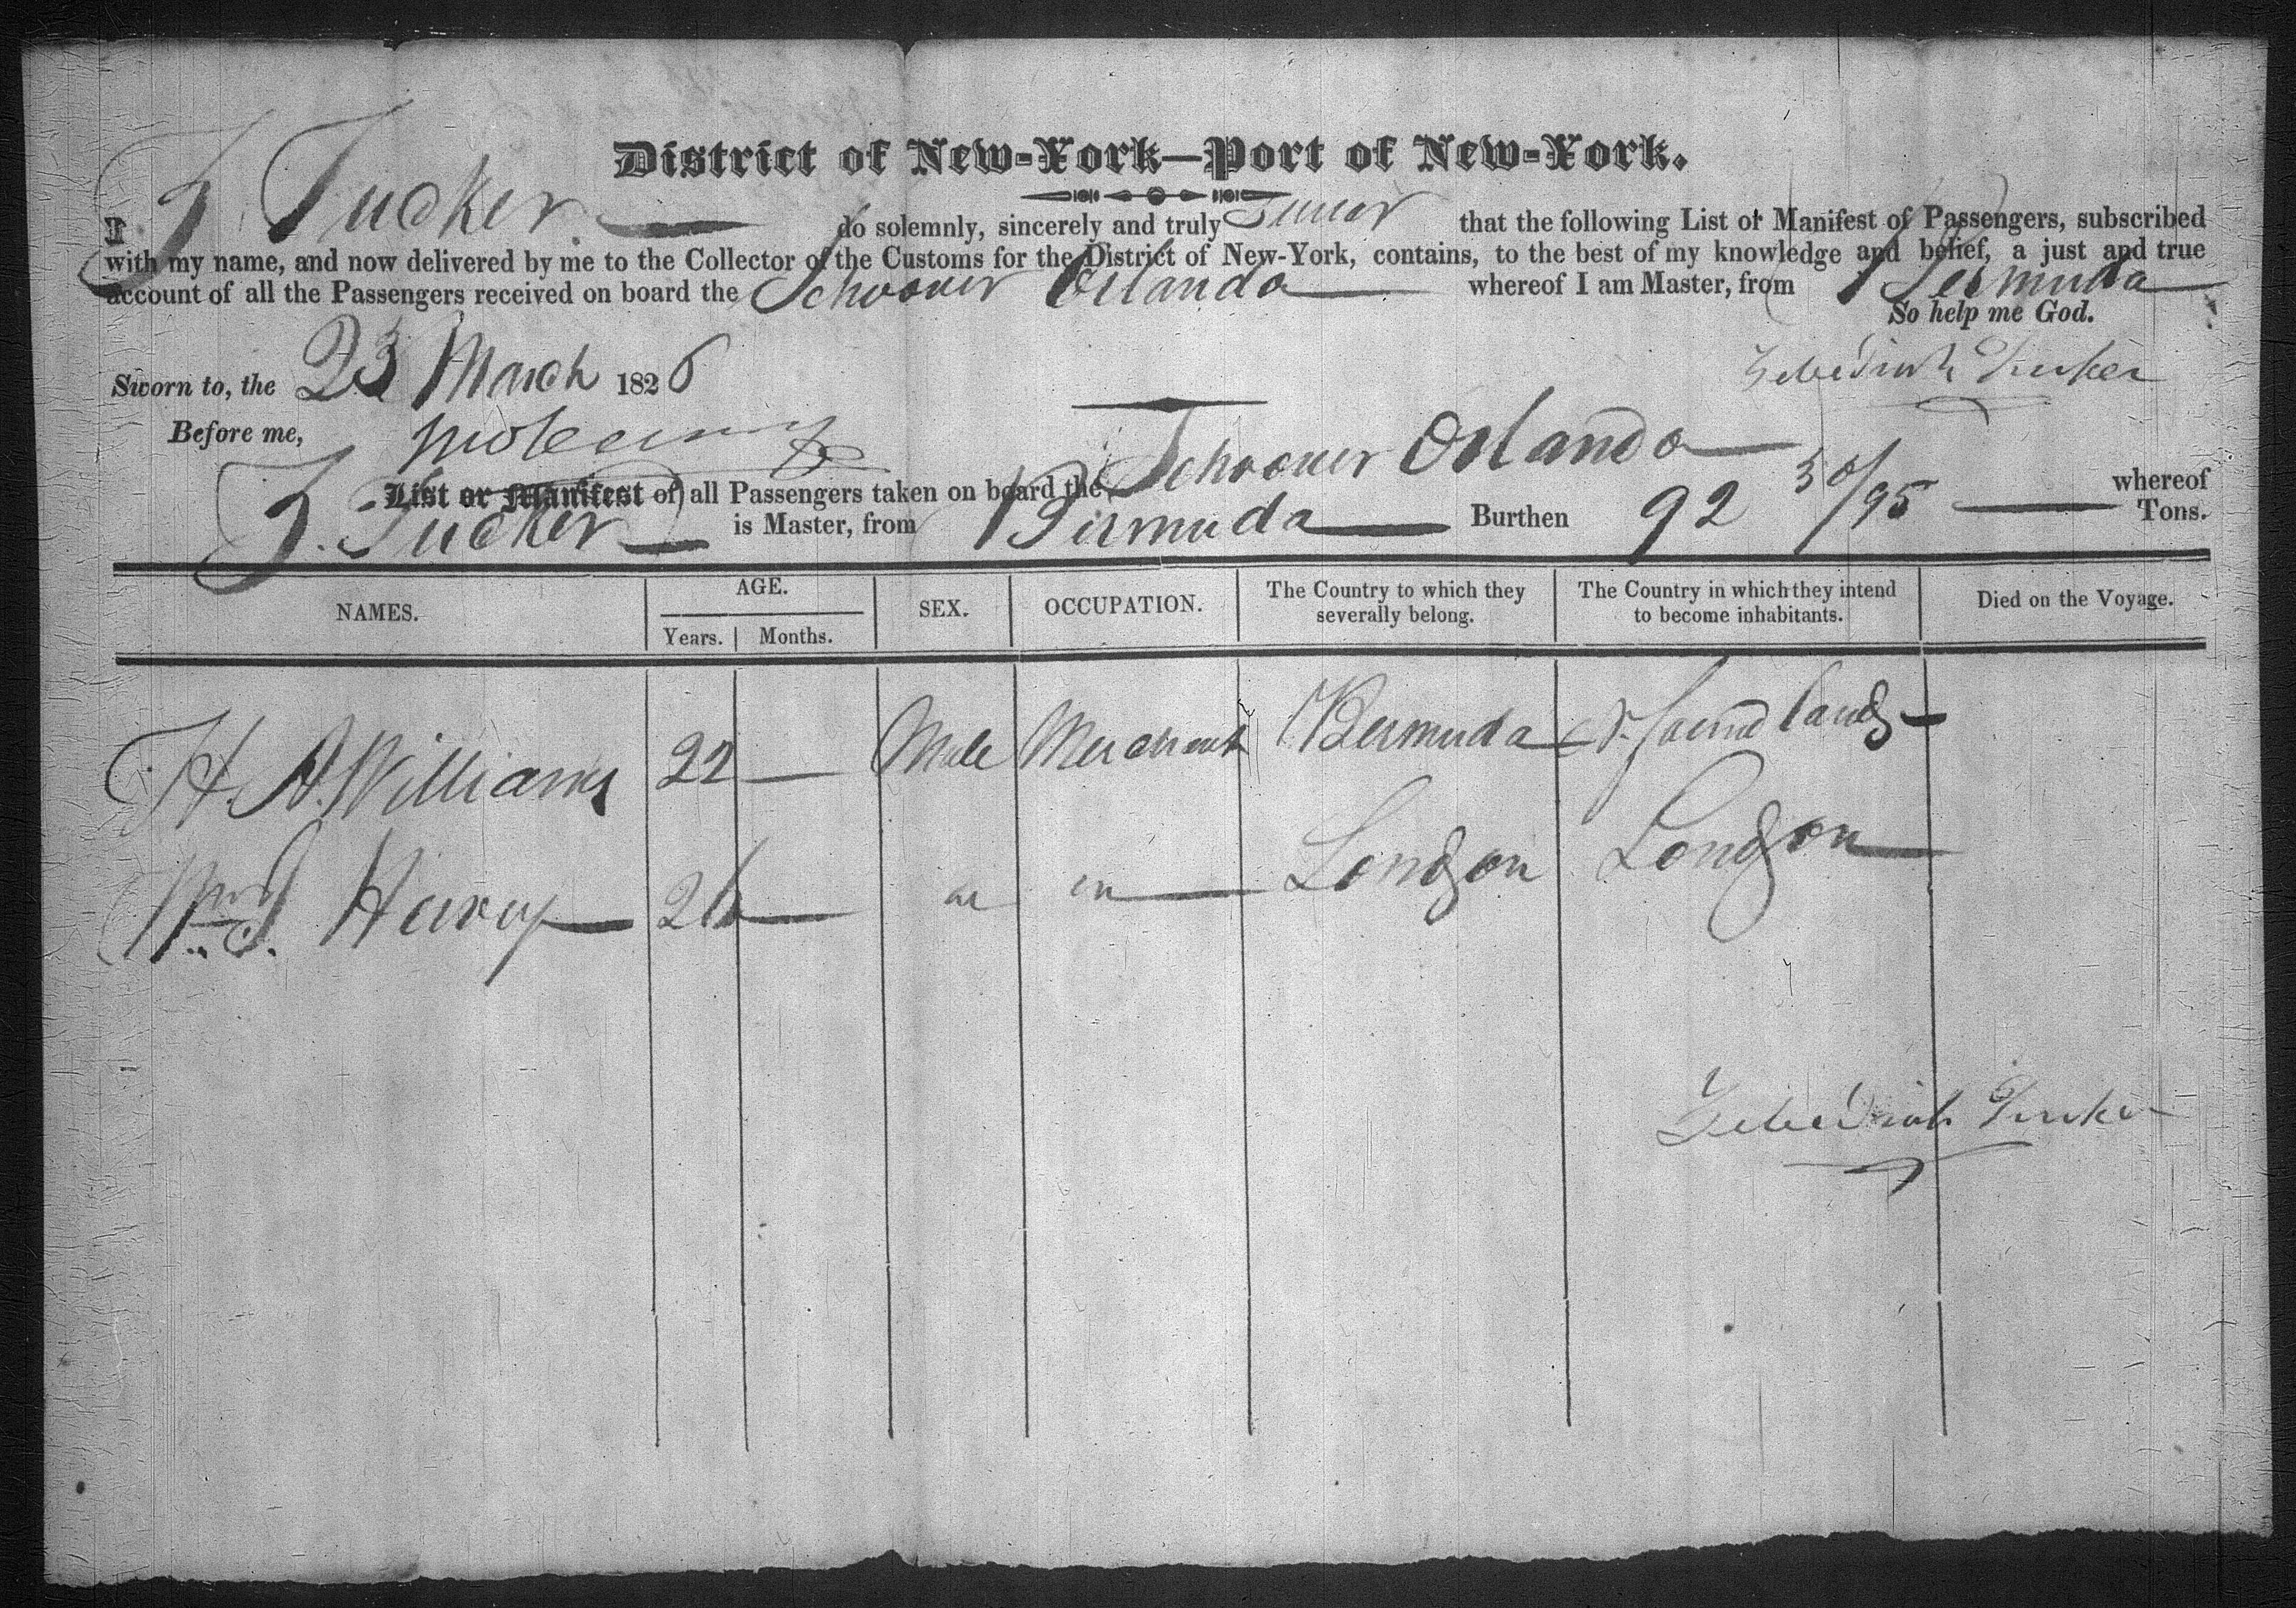 District of New-York—Port of New-York.
I Z. Tucker do solemnly, sincerely and truly swear that the following List or Manifest of Passengers, subscribed
with my name, and now delivered by me to the Collector of the Customs for the District of New-York, contains, to the best of my knowledge and belief, a just and true
account of all the Passengers received on board the Schooner Orlando whereof I am Master, from Bermuda
So help me God.
Sworn to, the 23 March 1826
Zebediah Tucker
Before me,
List or Manifest of all Passengers taken on board the Schooner Orlando whereof
Z. Tucker is Master, from Bermuda Burthen 92 30/95 Tons.
NAMES. AGE. SEX. OCCUPATION. The Country to which they severally belong. The Country in which they intend to become inhabitants. Died on the Voyage.
Years. Months.
H. A. Williams 22 — Male Merchant Bermuda N. foundland
Wm. J. Harvy 26 — London London
Zebediah Tucker